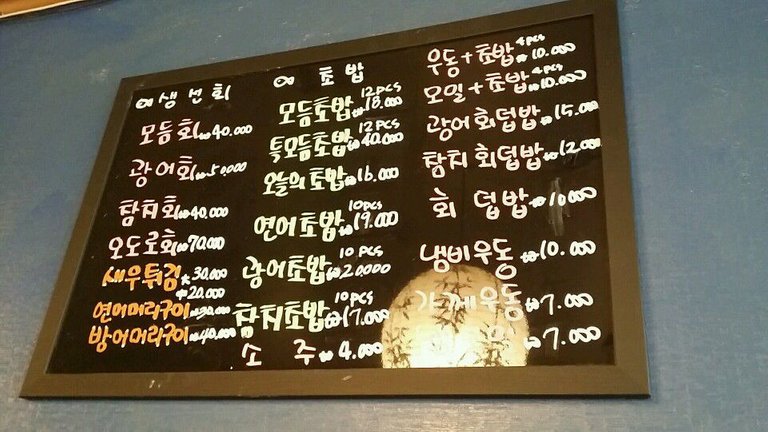 생선회
모듬회 40.000
광어회 50,000
참치회 40.000
오도로회 70.000
새우튀김 大 30.000
中 20.000
연어머리구이 30.000
방어머리구이 40.000
초밥
모듬초밥 12pcs 18.000
특모듬초밥 12pcs 40.000
오늘의초밥 16.000
연어초밥 10pcs 19.000
광어초밥 10pcs 20000
참치초밥 10pcs 17.000
소주 4.000
우동+초밥 4pcs 10.000
모밀+초밥 4pcs 10.000
광어회덮밥 15.000
참치회덮밥 12.000
회덮밥 10000
냄비우동 10.000
가께우동 7.000
7.000